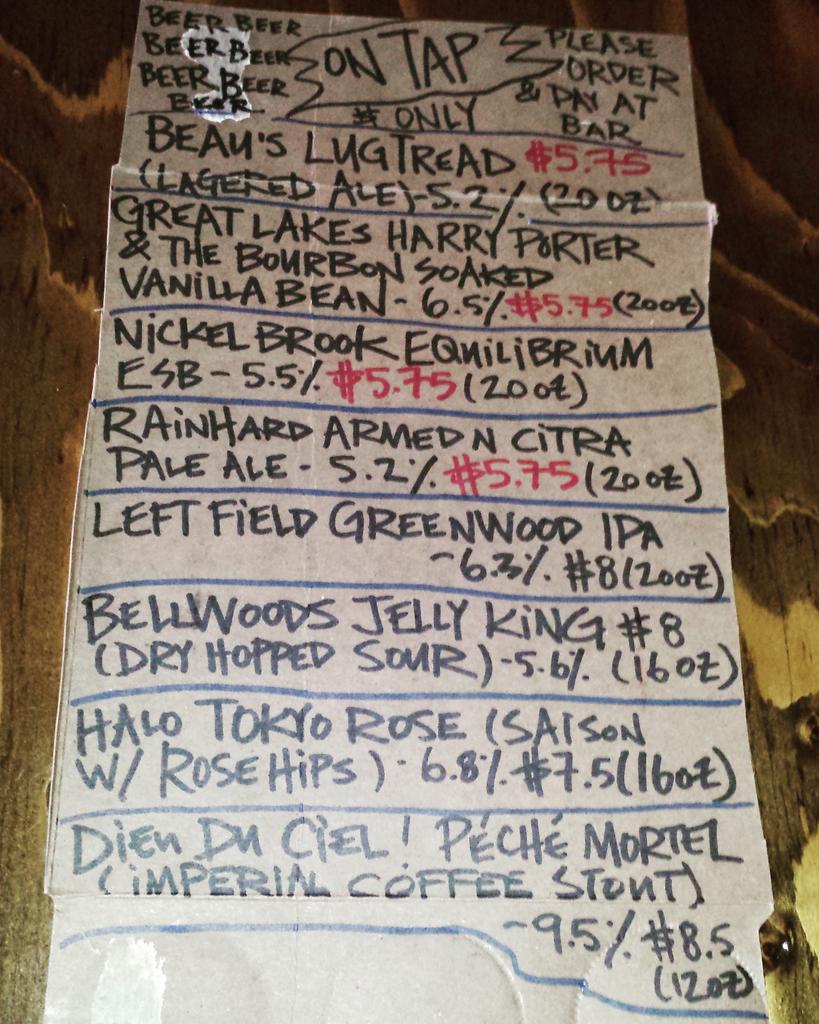 BEER BEER
BEER BEER
BEER BEER
BEER
ON TAP
$ ONLY
PLEASE
ORDER
& PAY AT
BAR
BEAU'S LUGTREAD $5.75
(LAGERED ALE)-5.2% (20 OZ)
GREAT LAKES HARRY PORTER
& THE BOURBON SOAKED
VANILLA BEAN - 6.5% $5.75 (20OZ)
NICKEL BROOK EQUILIBRIUM
ESB - 5.5% $5.75 (20 OZ)
RAINHARD ARMED N CITRA
PALE ALE - 5.2% $5.75 (20 OZ)
LEFT FIELD GREENWOOD IPA
-6.3% $8 (20OZ)
BELLWOODS JELLY KING $8
(DRY HOPPED SOUR) -5.6% (16 OZ)
HALO TOKYO ROSE (SAISON
W/ ROSE HIPS) - 6.8% $7.5 (16OZ)
DIEU DU CIEL! PÉCHÉ MORTEL
(IMPERIAL COFFEE STOUT)
-9.5% $8.5
(12OZ)